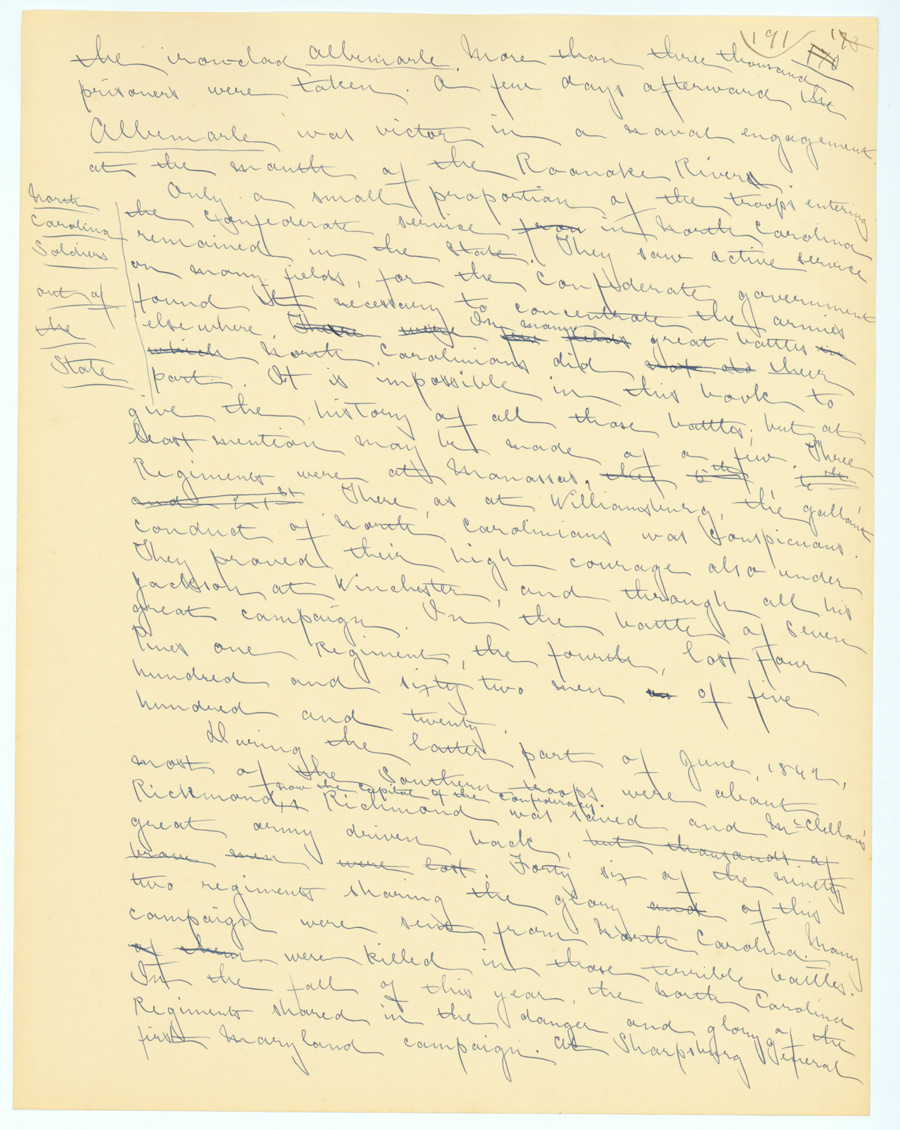 191
the ironclad Albemarle. More than three thousand
prisoners were taken. A few days afterward the
Albemarle was victor in a naval engagement
at the mouth of the Roanoke River.
Only a small proportion of the troops entering
the Confederate service from in North Carolina
remained in the State. They saw active service
on many fields, for the Confederate government
found it necessary to concentrate the armies
elsewhere. There were In many great battles in
which North Carolinians did their
part. It is impossible in this book to
give the history of all those battles; but at
least mention may be made of a few. Three
Regiments were at Manassas, the 5th 6th
and 21st. There, as at Williamsburg, the gallant
conduct of North Carolinians was conspicuous.
They proved their high courage also under
Jackson at Winchester, and through all his
great campaign. In the battle of Seven
Pines one Regiment, the fourth, lost four
hundred and sixty two men of five
hundred and twenty.
During the latter part of June, 1862,
most of the Southern troops were about
Richmond, now the capital of the Confederacy.
Richmond was saved and McClellan's
great army driven back, but thousands of
brave men were lost. Forty six of the ninety
two regiments sharing the glory and of this
campaign were sent from North Carolina. Many
of them were killed in those terrible battles.
In the fall of this year, the North Carolina
Regiments shared in the danger and glory of the
first Maryland campaign. At Sharpsburg General
North
Carolina
Soldiers
out of
the
State